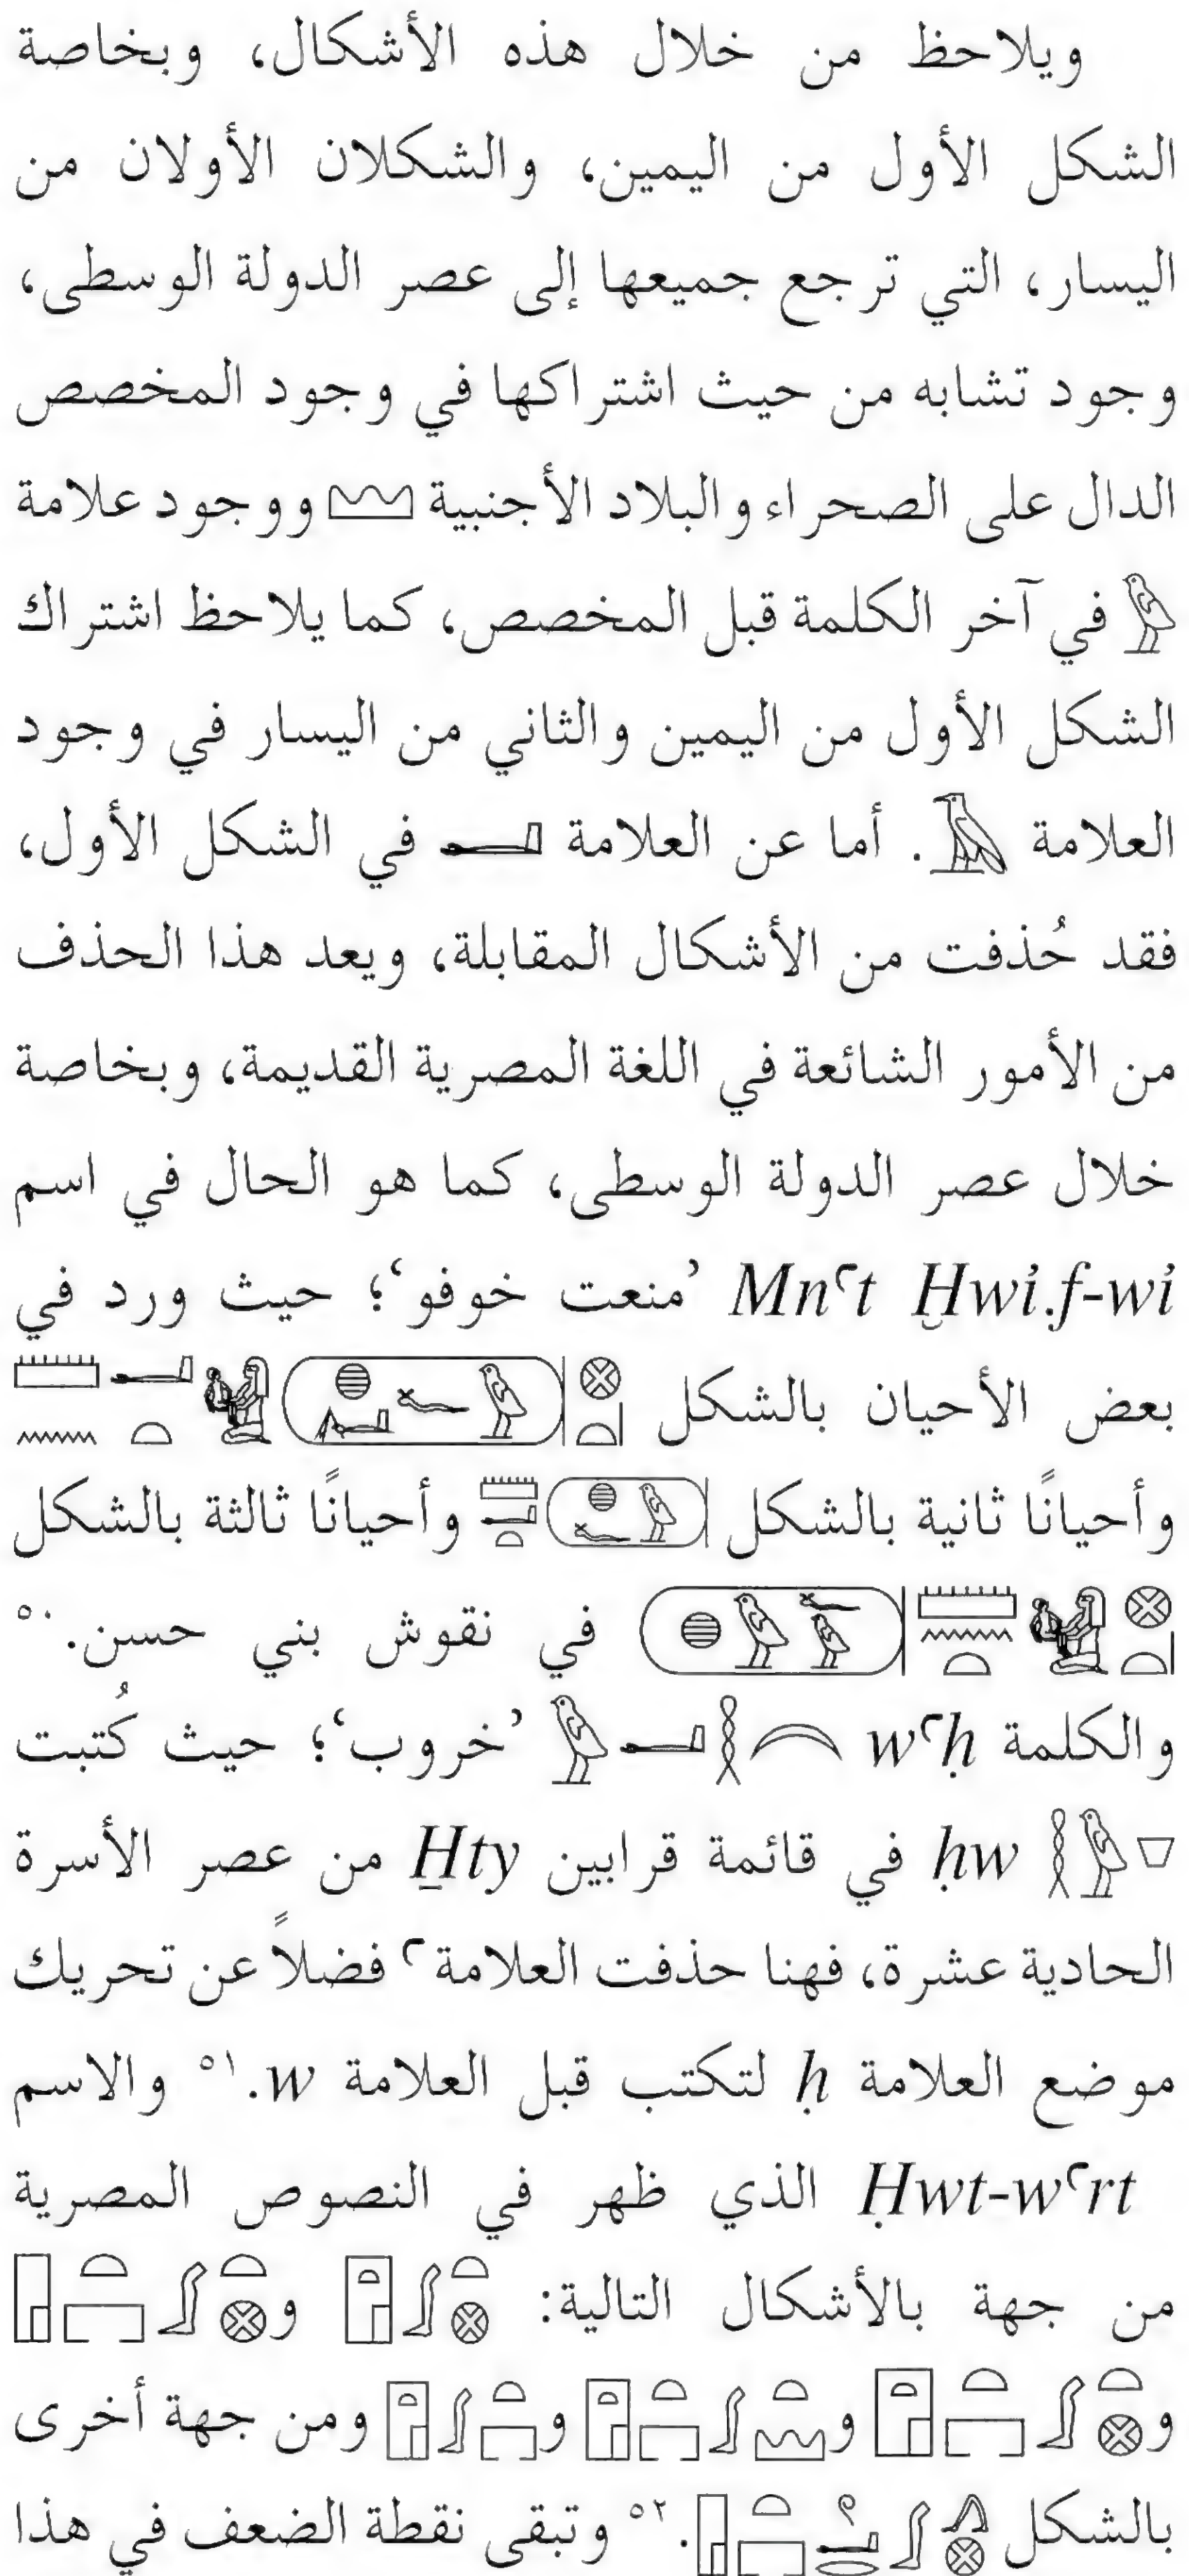 ويلاحظ من خلال هذه الأشكال، وبخاصة
الشكل الأول من اليمين، والشكلان الأولان من
اليسار، التي ترجع جميعها إلى عصر الدولة الوسطى،
وجود تشابه من حيث اشتراكها في وجود المخصص
الدال على الصحراء والبلاد الأجنبية 𓈉 ووجود علامة
𓅱 في آخر الكلمة قبل المخصص، كما يلاحظ اشتراك
الشكل الأول من اليمين والثاني من اليسار في وجود
العلامة 𓄿. أما عن العلامة 𓂝 في الشكل الأول،
فقد حُذفت من الأشكال المقابلة، ويعد هذا الحذف
من الأمور الشائعة في اللغة المصرية القديمة، وبخاصة
خلال عصر الدولة الوسطى، كما هو الحال في اسم
Mnꜥt Ḫwi҆.f-wi҆ ’منعت خوفو‘؛ حيث ورد في
بعض الأحيان بالشكل
وأحيانًا ثانية بالشكل وأحيانًا ثالثة بالشكل
في نقوش بني حسن.٥٠
والكلمة wꜥḥ ’خروب‘؛ حيث كُتبت
ḥw في قائمة قرابين H̱ty من عصر الأسرة
الحادية عشرة، فهنا حذفت العلامة ꜥ فضلاً عن تحريك
موضع العلامة ḥ لتكتب قبل العلامة w.٥١ والاسم
Ḥwt-wꜥrt الذي ظهر في النصوص المصرية
من جهة بالأشكال التالية: و
و و و ومن جهة أخرى
بالشكل .٥٢ وتبقى نقطة الضعف في هذا